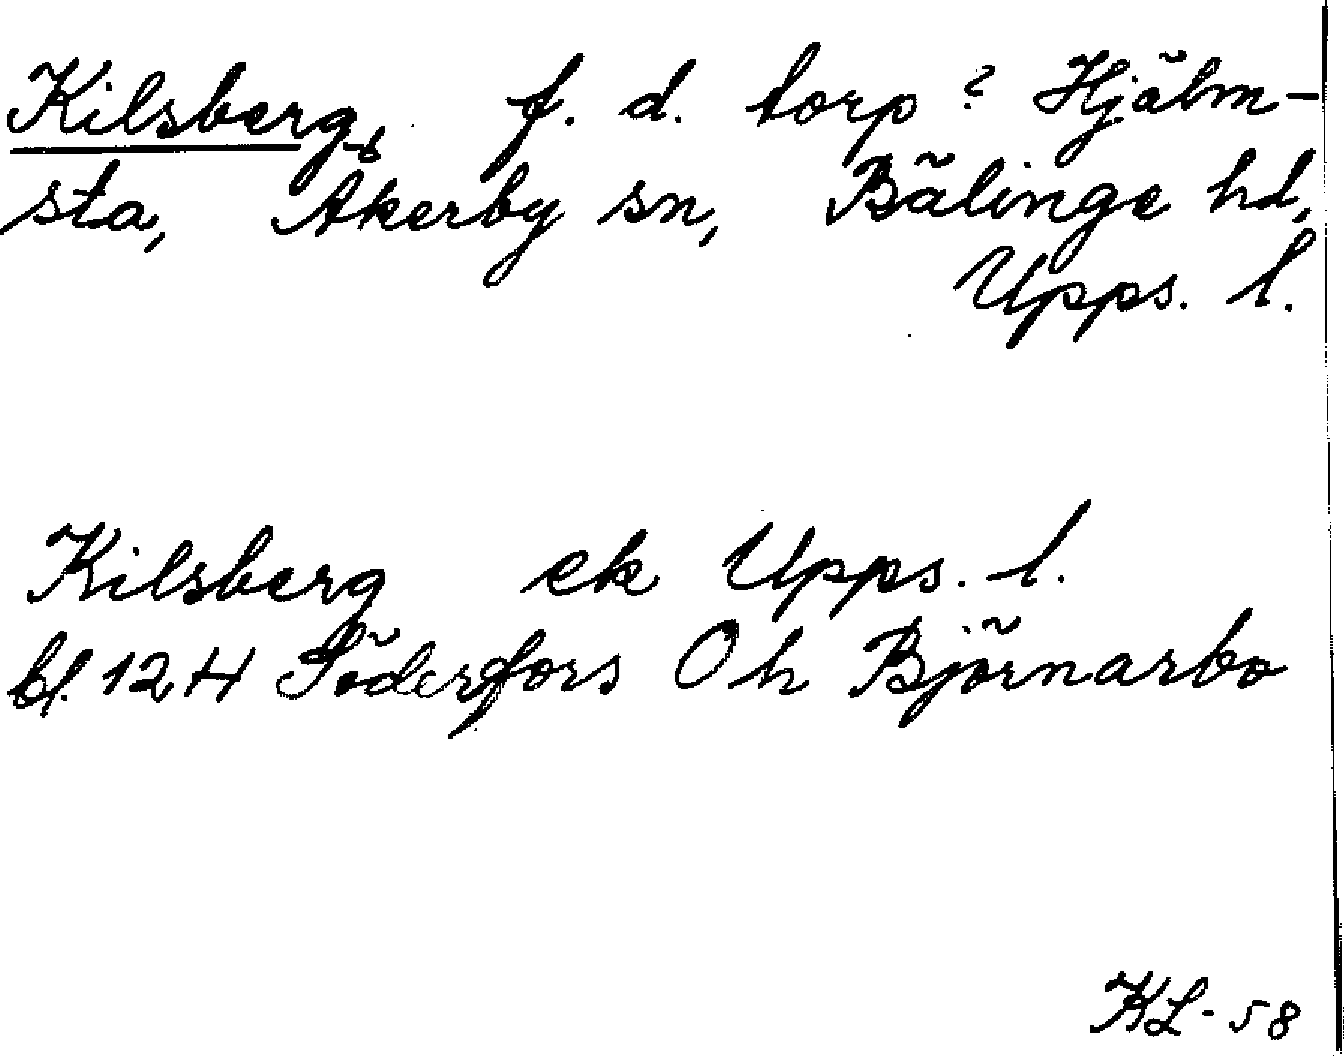 Kilsberg, f. d. torp? Hjälm-
sta, Åkerby sn, Bälinge hd,
Upps. l.
Kilsberg ek Upps. l.
bl. 124 Söderfors Oh Björnarbo
KL-58